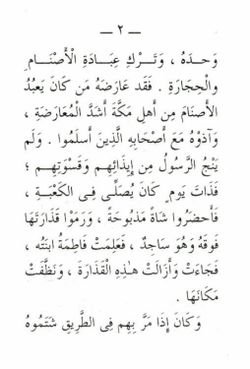 — ٢ —
وَحدَهُ ، وَتَركِ عِبَادَةِ الأَصْنَامِ
والْحِجَارَةِ . فَقَد عَارَضَهُ مَن كَانَ يَعبُدُ
الأَصنَامَ مِن أَهلِ مَكَّةَ أَشَدَّ المُعَارَضَةِ ،
وَآذَوْهُ مَعَ أَصْحَابِهِ الَّذِينَ أَسلَمُوا . وَلَم
يَنْجُ الرَّسُولُ مِن إِيذَائِهِم وَقَسْوَتِهِم ؛
فَذَاتَ يَومٍ كَانَ يُصَلِّى فِى الكَعْبَةِ ،
فَأَحضَرُوا شَاةً مَذبُوحَةً ، وَرَمَوْا قَذَارَتَهَا
فَوقَهُ وَهُوَ سَاجِدٌ ، فَعَلِمَتْ فَاطِمَةُ ابنَتُه ،
فَجَاءَتْ وَأَزَالَتْ هٰذِهِ القَذَارَةَ ، وَنَظَّفَتْ
مَكَانَهَا .
وَكَانَ إِذَا مَرَّ بِهِم فِى الطَّرِيقِ شَتَمُوهُ